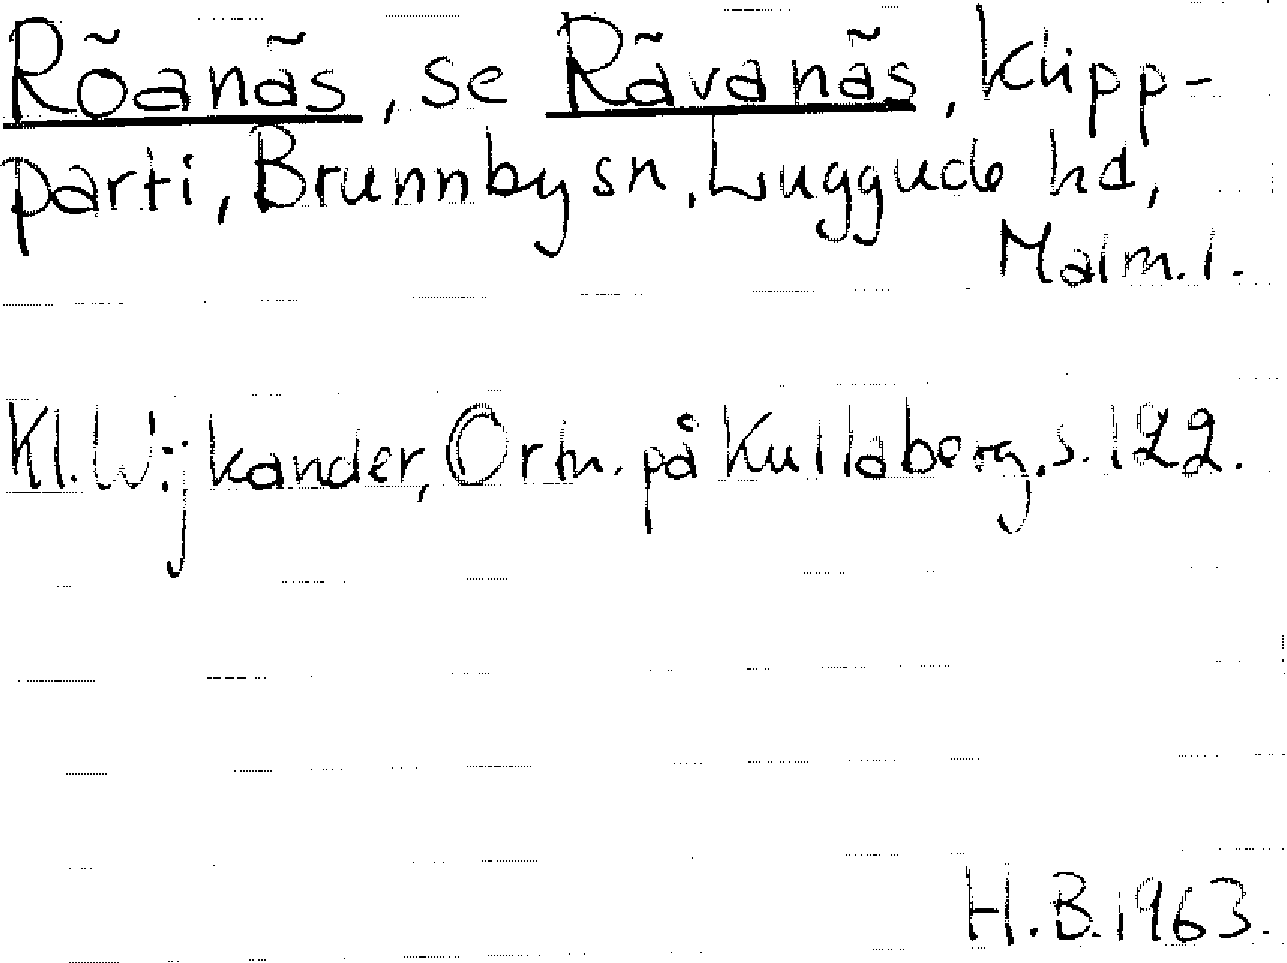 Röanäs, se Rävanäs, Klipp-
parti, Brunnby sn, Luggude hd,
Malm. l.
Kl. Wijkander, Ortn. på Kullaberg, s. 122.
H.B. 1963.